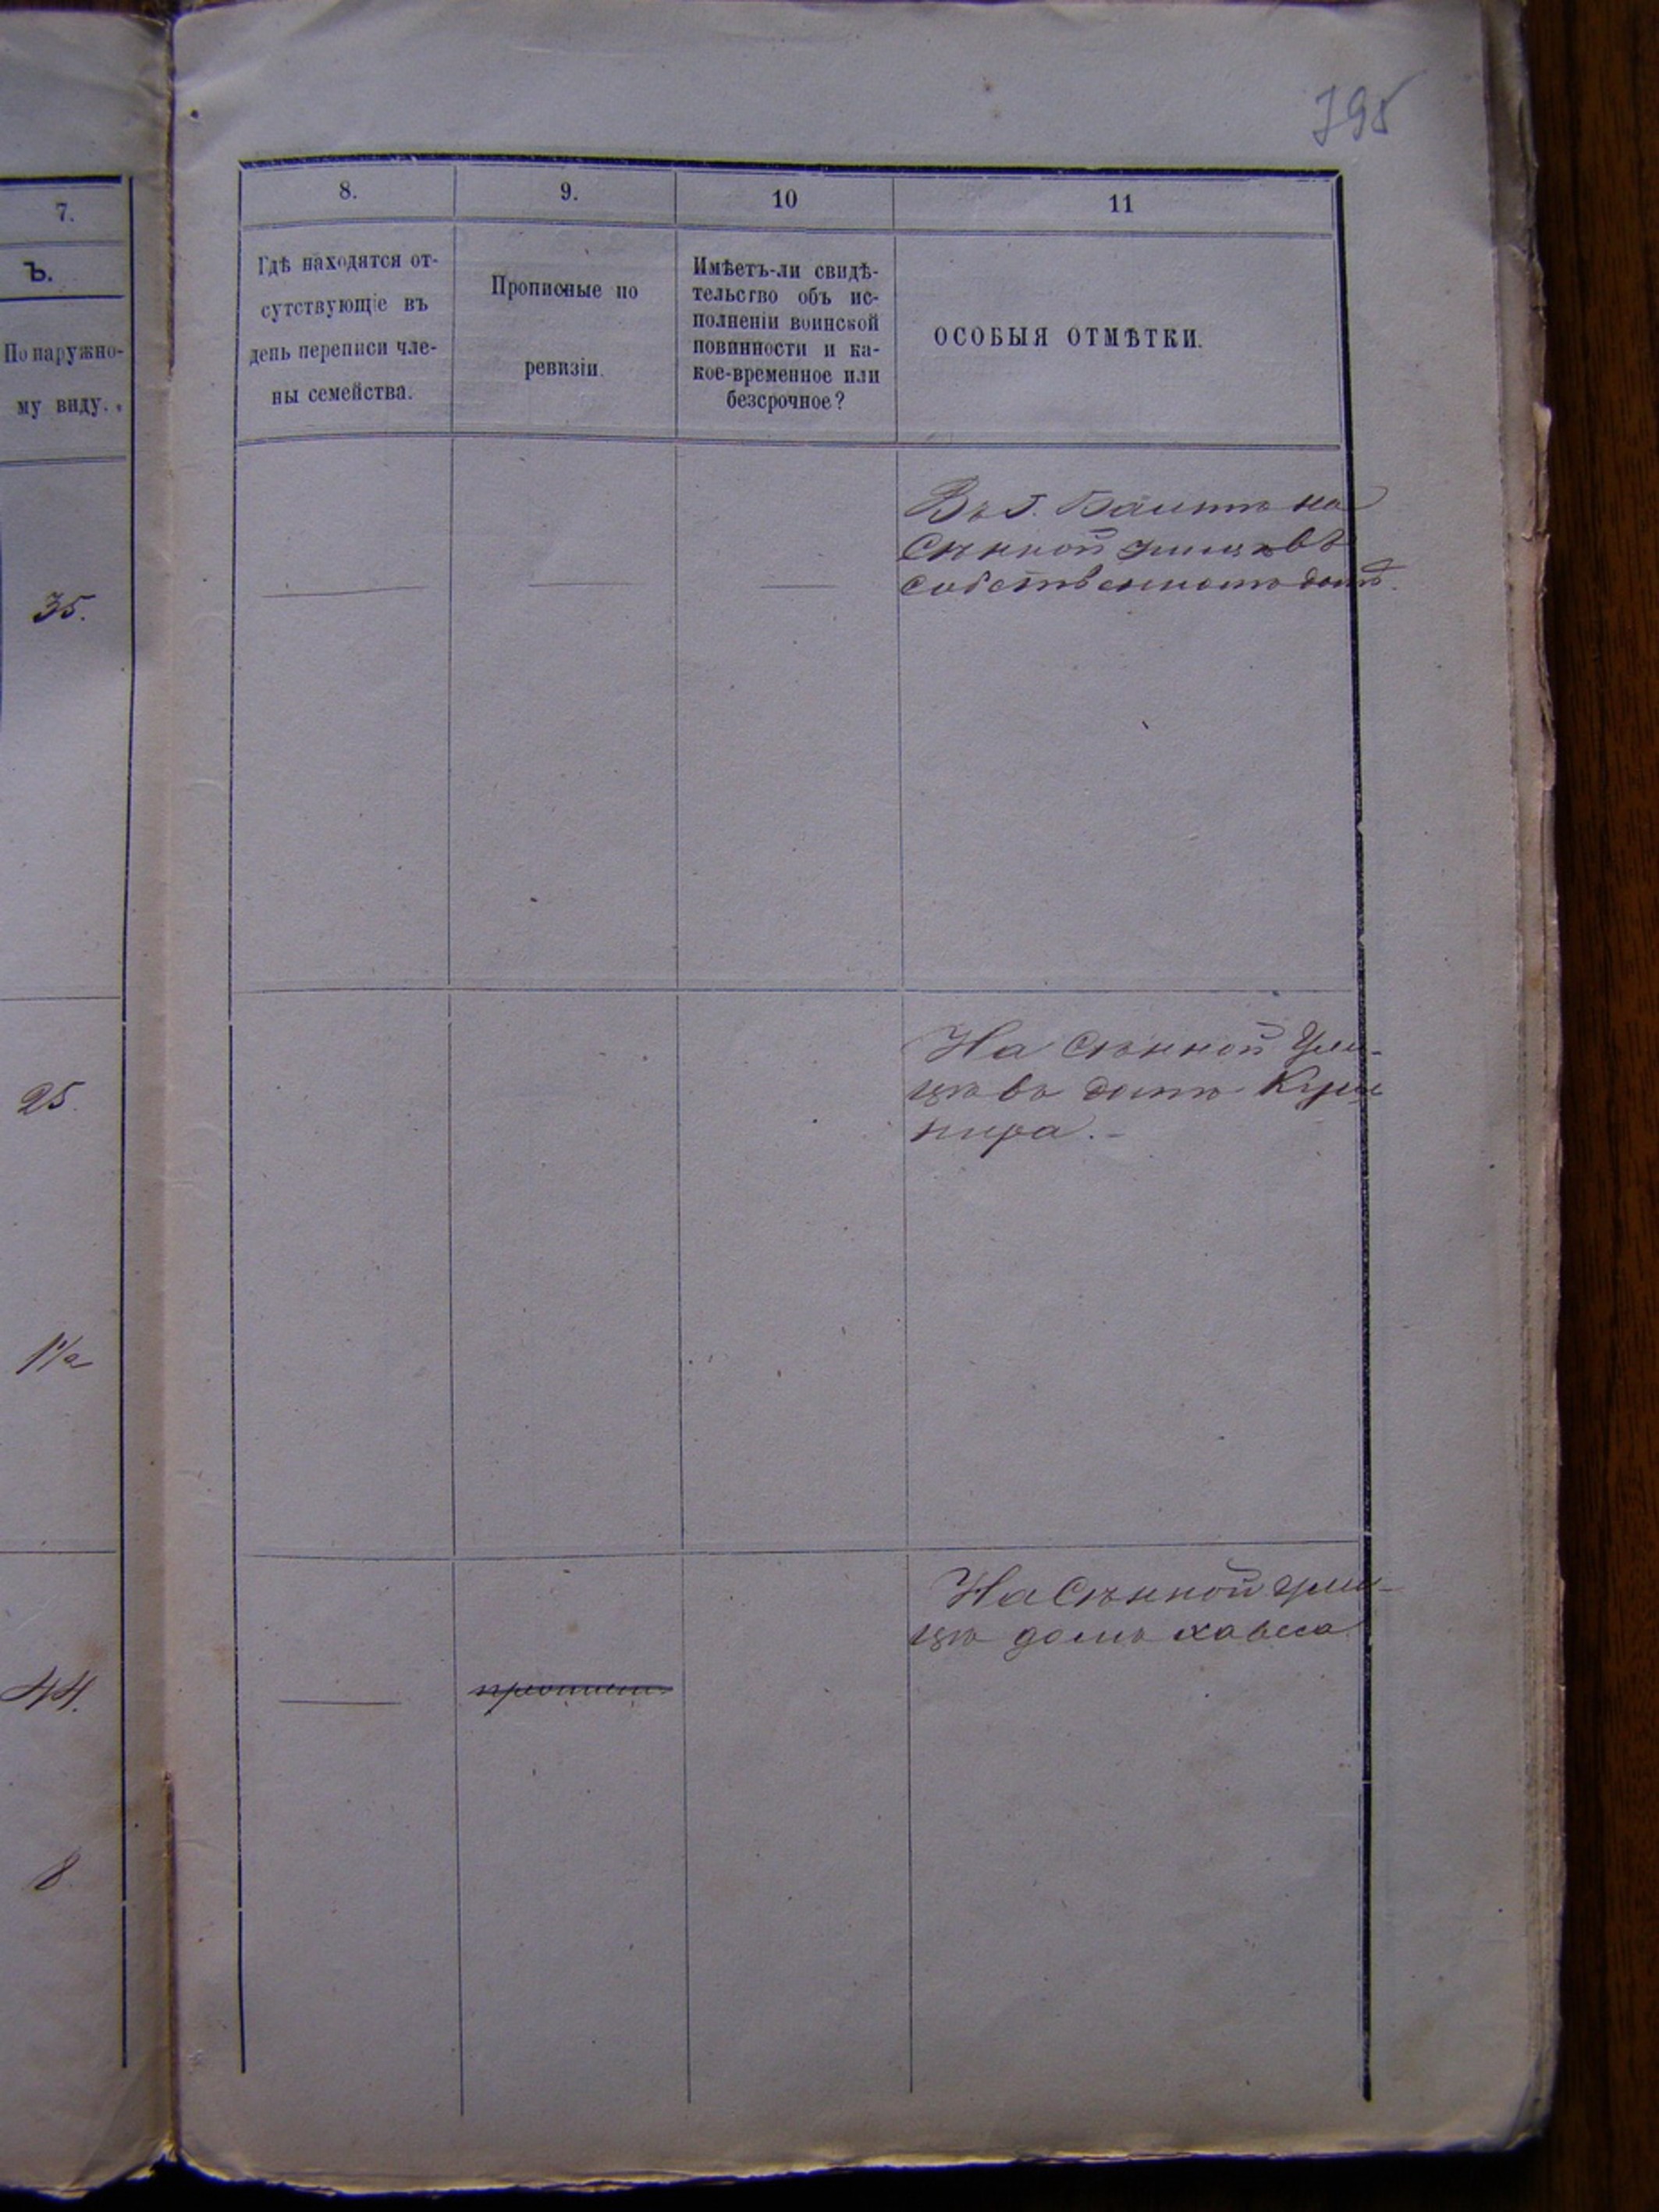 795
7.
8.
9.
10
11
Ъ.
По наружно-
му виду.
Гдѣ находятся от-
сутствующіе въ
день переписи чле-
ны семейства.
Прописные по
ревизіи.
Имѣетъ-ли свидѣ-
тельство объ ис-
полненіи воинской
повинности и ка-
кое-временное или
безсрочное?
ОСОБЫЯ ОТМѢТКИ.
35.
Въ г. Балтѣ на
Сѣнной улицѣ въ
собственномъ домѣ.
25.
На Сѣнной Ули-
цѣ въ домѣ
1 1/2
На Сѣнной ули-
цѣ домъ
44.
8